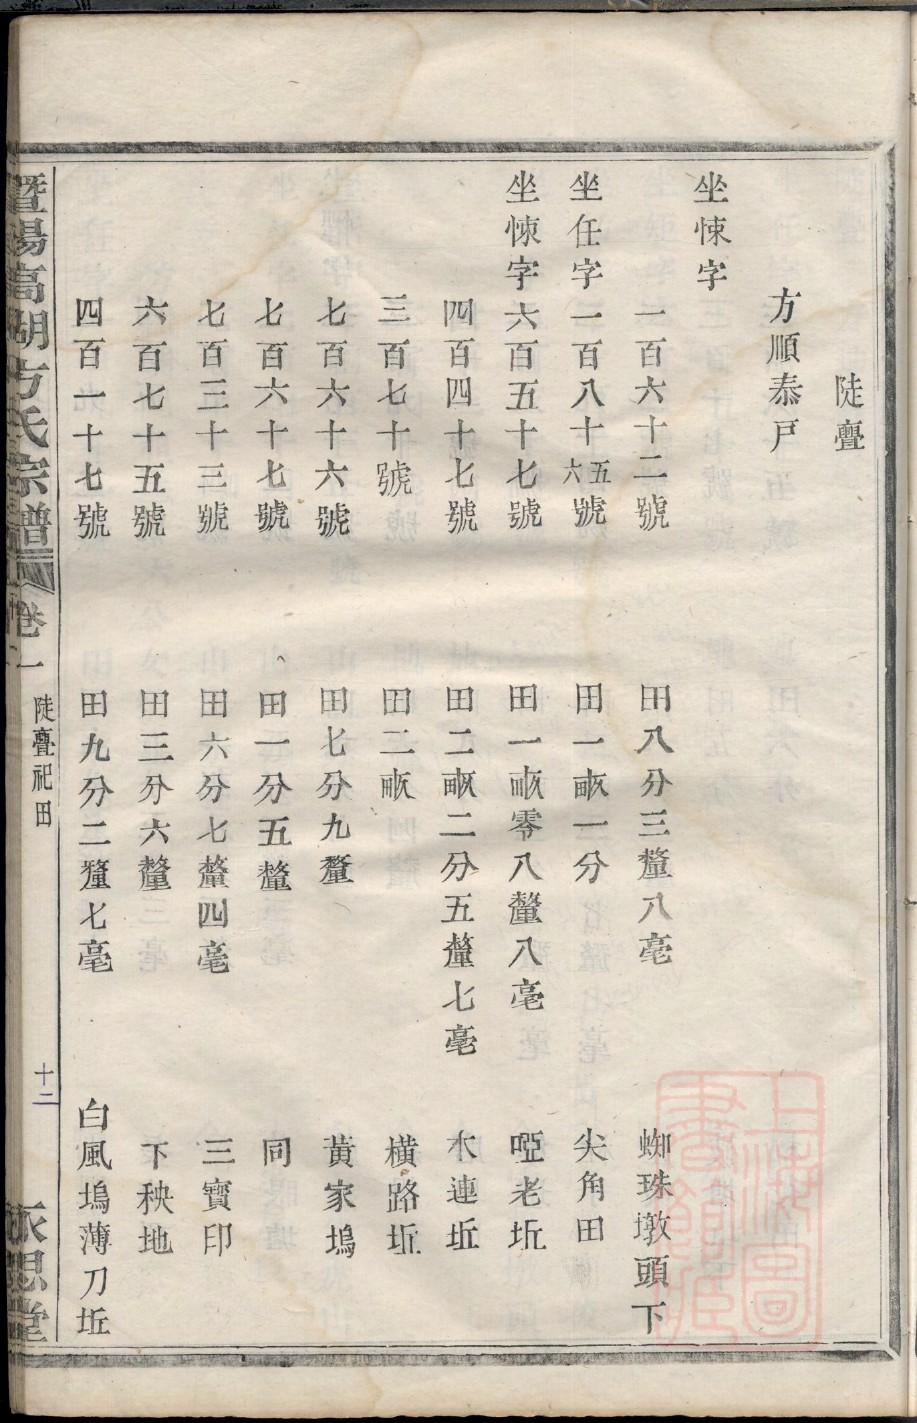 陡亹
方順泰戶
坐悚字
一百六十二號 田八分三釐八毫 蜘珠墩頭下
坐任字一百八十五六號 田一畝一分 尖角田
坐悚字六百五十七號 田一畝零八釐八毫 啞老坵
四百四十七號 田二畝二分五釐七毫 水連坵
三百七十號 田二畝 橫路坵
七百六十六號 田七分九釐 黃家塢
七百六十七號 田一分五釐 同
七百三十三號 田六分七釐四毫 三寶印
六百七十五號 田三分六釐 下秧地
四百一十七號 田九分二釐七毫 白風塢薄刀坵
暨陽高湖方氏宗譜 卷一 陡亹祀田 十二 永思堂